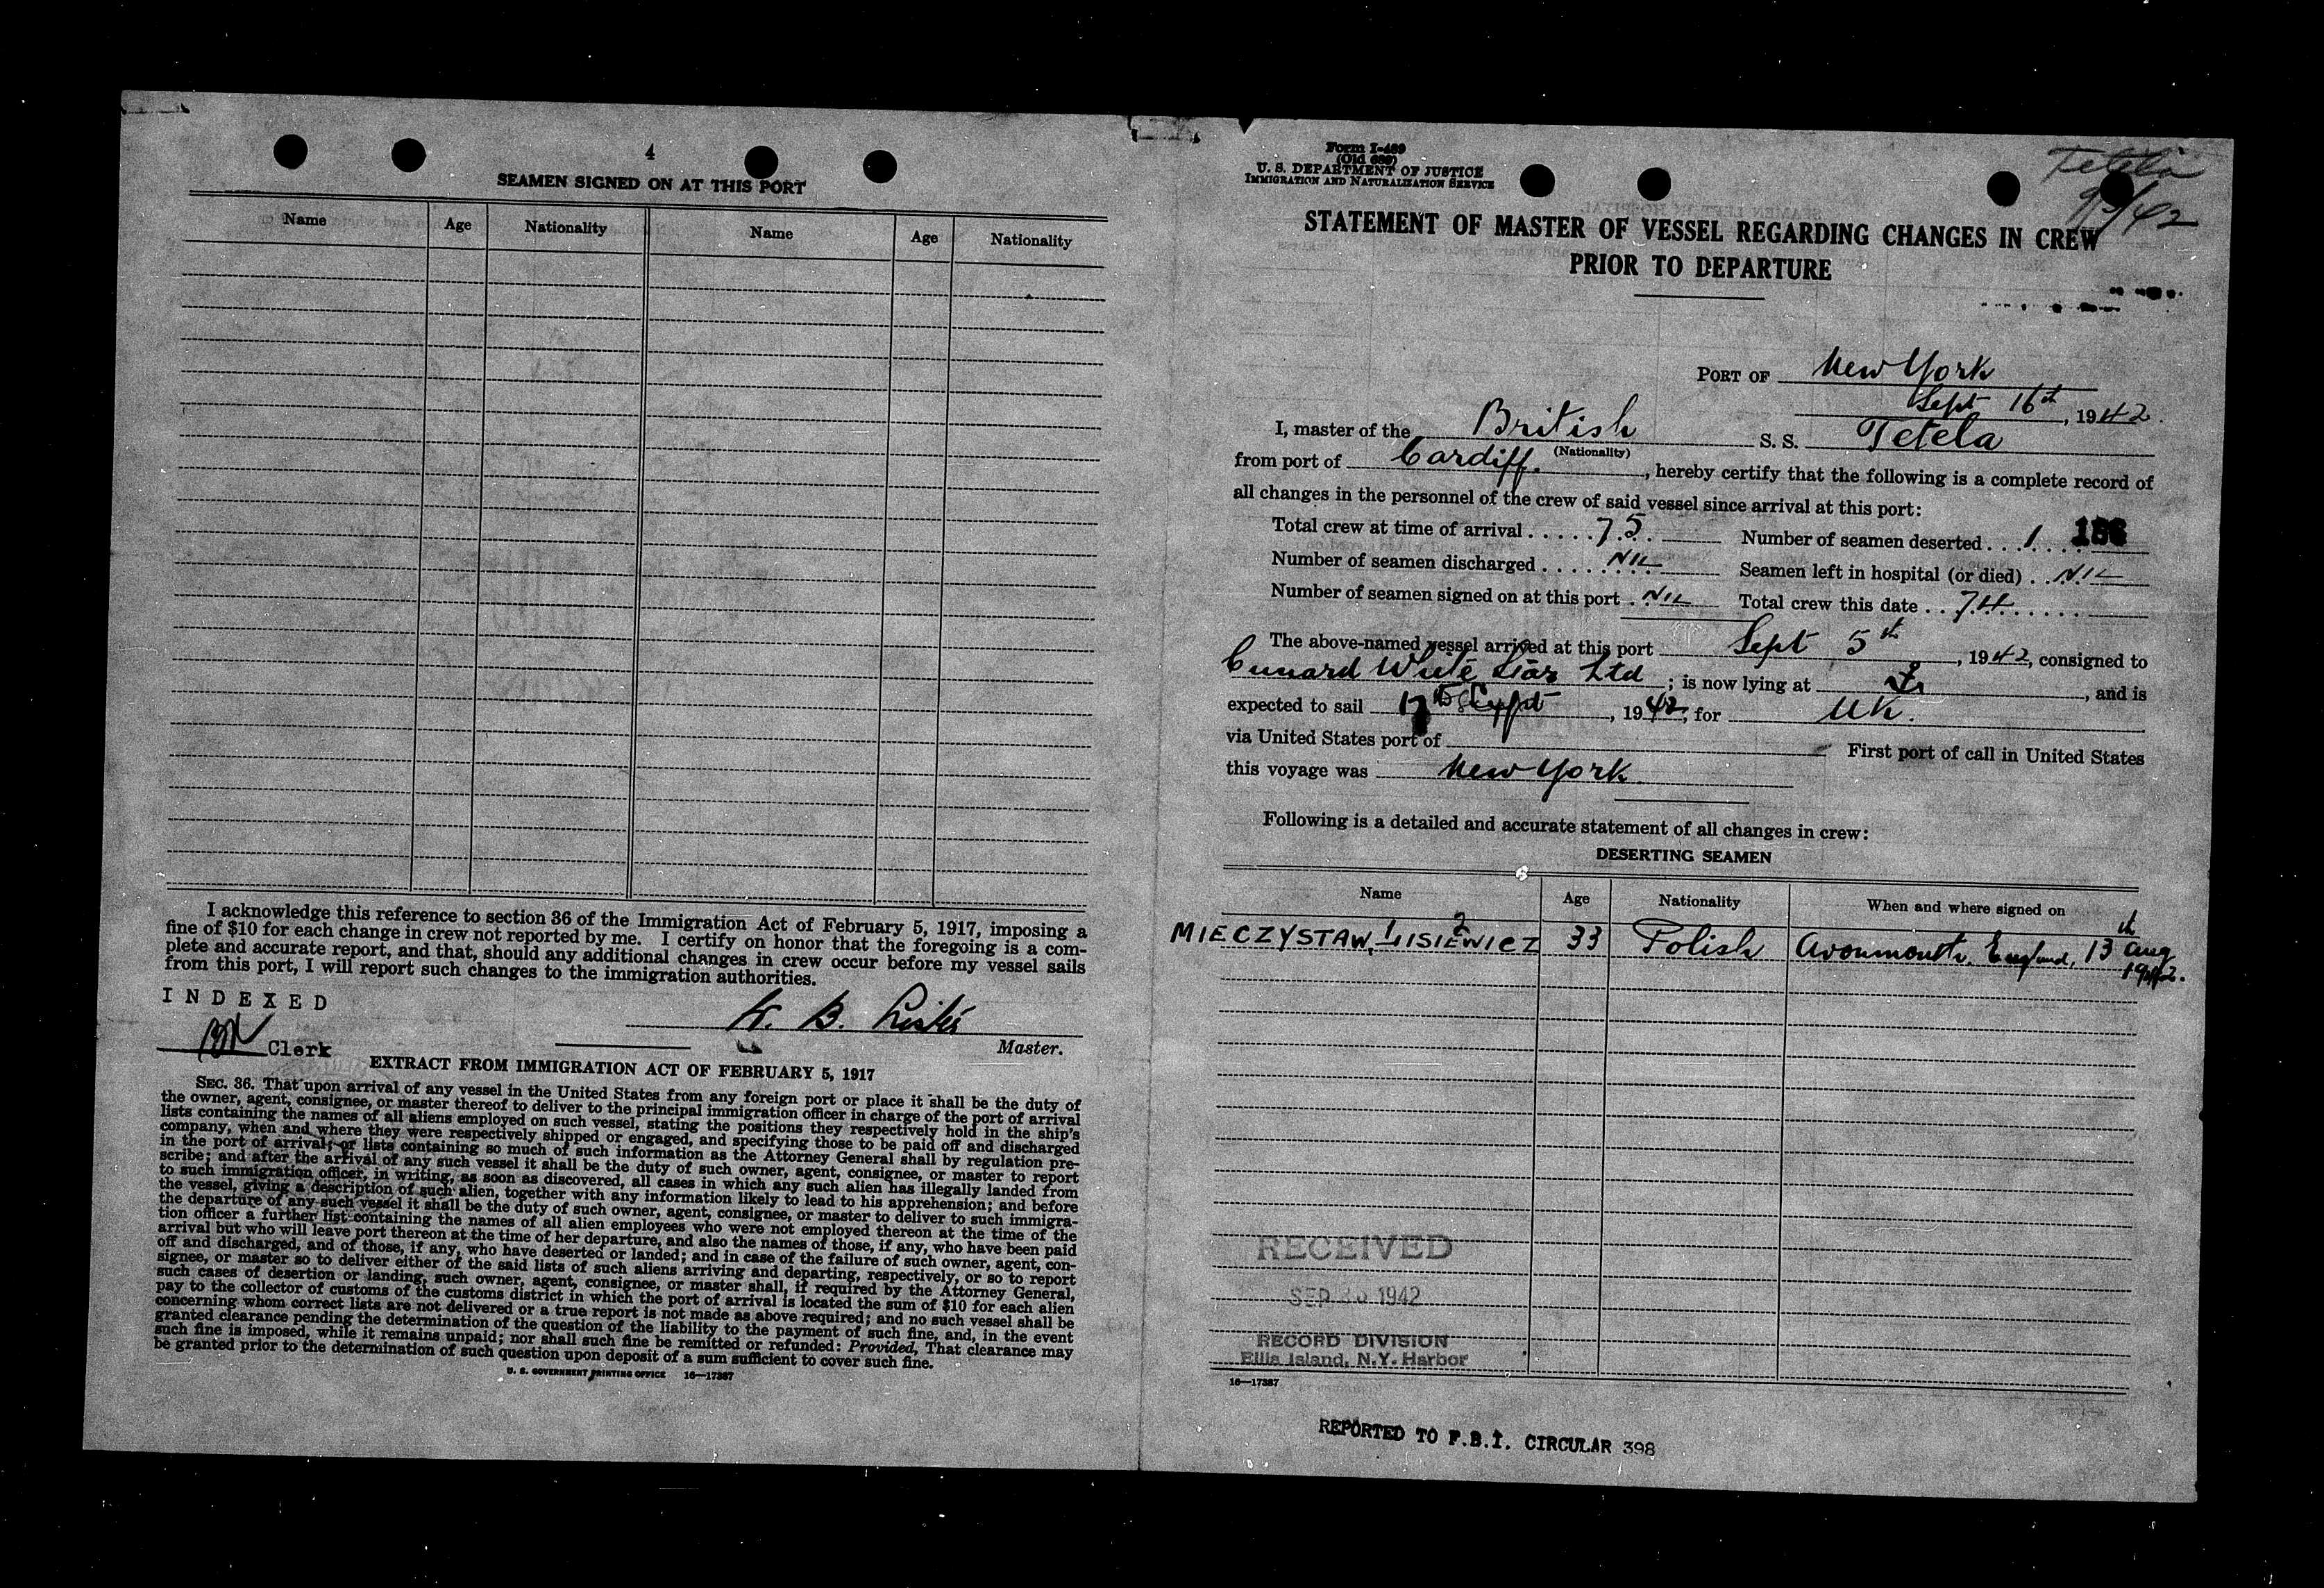 4
SEAMEN SIGNED ON AT THIS PORT
Name Age Nationality Name Age Nationality
I acknowledge this reference to section 36 of the Immigration Act of February 5, 1917, imposing a
fine of $10 for each change in crew not reported by me. I certify on honor that the foregoing is a com-
plete and accurate report, and that, should any additional changes in crew occur before my vessel sails
from this port, I will report such changes to the immigration authorities.
INDEXED
Clerk
Master.
EXTRACT FROM IMMIGRATION ACT OF FEBRUARY 5, 1917
SEC. 36. That upon arrival of any vessel in the United States from any foreign port or place it shall be the duty of
the owner, agent, consignee, or master thereof to deliver to the principal immigration officer in charge of the port of arrival
lists containing the names of all aliens employed on such vessel, stating the positions they respectively hold in the ship's
company, when and where they were respectively shipped or engaged, and specifying those to be paid off and discharged
in the port of arrival; or lists containing so much of such information as the Attorney General shall by regulation pre-
scribe; and after the arrival of any such vessel it shall be the duty of such owner, agent, consignee, or master to report
to such immigration officer, in writing, as soon as discovered, all cases in which any such alien has illegally landed from
the vessel, giving a description of such alien, together with any information likely to lead to his apprehension; and before
the departure of any such vessel it shall be the duty of such owner, agent, consignee, or master to deliver to such immigra-
tion officer a further list containing the names of all alien employees who were not employed thereon at the time of the
arrival but who will leave port thereon at the time of her departure, and also the names of those, if any, who have been paid
off and discharged, and of those, if any, who have deserted or landed; and in case of the failure of such owner, agent, con-
signee, or master so to deliver either of the said lists of such aliens arriving and departing, respectively, or so to report
such cases of desertion or landing, such owner, agent, consignee, or master shall, if required by the Attorney General,
pay to the collector of customs of the customs district in which the port of arrival is located the sum of $10 for each alien
concerning whom correct lists are not delivered or a true report is not made as above required; and no such vessel shall be
granted clearance pending the determination of the question of the liability to the payment of such fine, and, in the event
such fine is imposed, while it remains unpaid; nor shall such fine be remitted or refunded: Provided, That clearance may
be granted prior to the determination of such question upon deposit of a sum sufficient to cover such fine.
U. S. GOVERNMENT PRINTING OFFICE 16—17387
Form I-489
(Old 689)
U. S. DEPARTMENT OF JUSTICE
IMMIGRATION AND NATURALIZATION SERVICE
Tetela
9/5/42
STATEMENT OF MASTER OF VESSEL REGARDING CHANGES IN CREW
PRIOR TO DEPARTURE
PORT OF New York
Sept 16th, 1942.
I, master of the British S. S. Tetela
(Nationality)
from port of Cardiff., hereby certify that the following is a complete record of
all changes in the personnel of the crew of said vessel since arrival at this port:
Total crew at time of arrival 75 Number of seamen deserted 1
Number of seamen discharged NIL Seamen left in hospital (or died) NIL
Number of seamen signed on at this port NIL Total crew this date 74
The above-named vessel arrived at this port Sept 5th, 1942, consigned to
Cunard White Star Ltd; is now lying at, and is
expected to sail 17th Sept, 1942, for UK.
via United States port of First port of call in United States
this voyage was New York
Following is a detailed and accurate statement of all changes in crew:
DESERTING SEAMEN
Name Age Nationality When and where signed on
MIECZYSTAW, LISIEWICZ 33 Polish Avonmouth, England, 13th Aug
1942.
RECEIVED
SEP 30 1942
RECORD DIVISION
Ellis Island, N.Y. Harbor
16—17387
REPORTED TO F.B.I. CIRCULAR 398